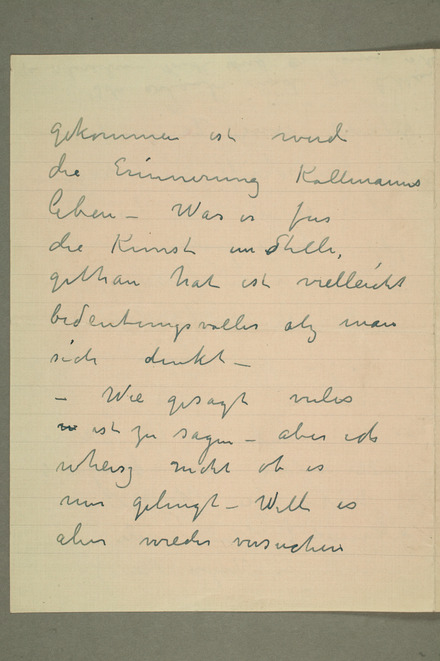 gekommen ist wird
die Erinnerung Kollmanns
leben – Was er fur
die Kunst im Stille,
gethan hat ist vielleicht
bedeutungsvoller als man
sich denkt –
– Wie gesagt vieles
ist zu sagen – aber ich
nicht ob es
mir gelingt – Will es
aber wieder versuchen